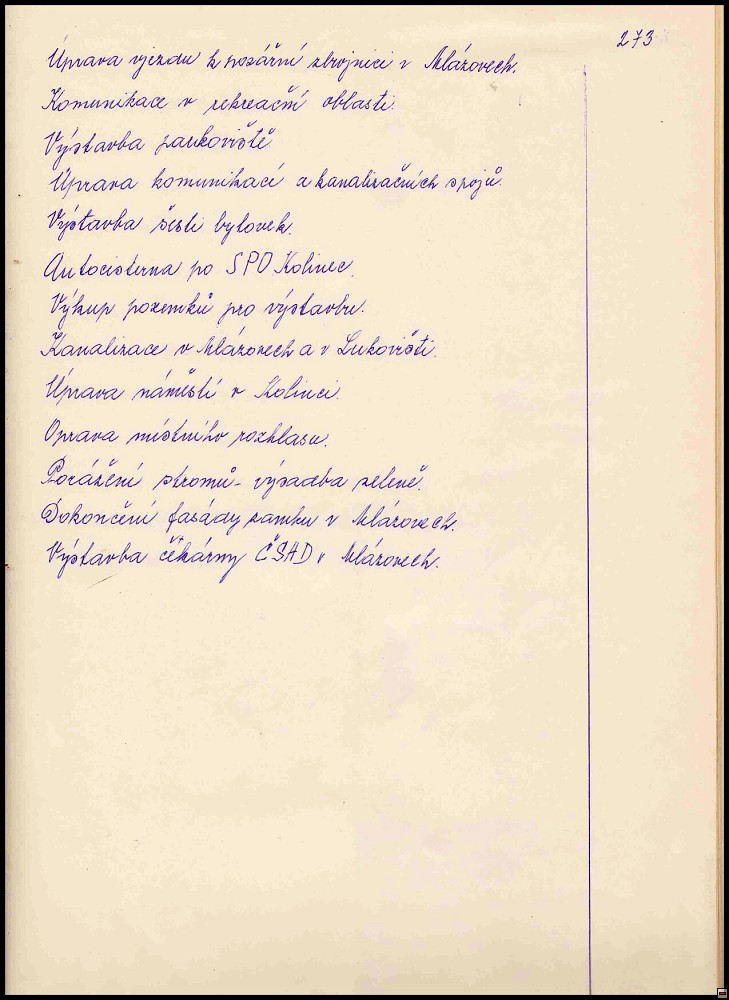 273
Úprava vjezdu k požární zbrojnici v Mlázovech.
Komunikace v rekreační oblasti.
Výstavba parkoviště
Úprava komunikací a kanalizačních spojů.
Výstavba šesti bytovek.
Autocisterna po SPO Kolinec.
Výkup pozemků pro výstavbu.
Kanalizace v Mlázovech a v Lukovišti.
Úprava náměstí v Kolinci.
Oprava místního rozhlasu.
Porážení stromů - výsadba zeleně.
Dokončení fasády zámku v Mlázovech.
Výstavba čekárny ČSAD v Mlázovech.